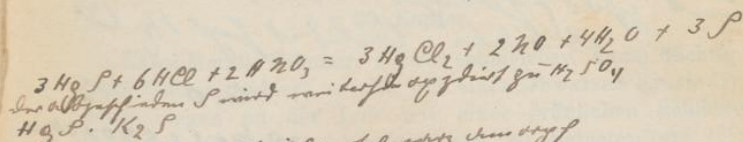 3 Hg S + 6 HCl + 2 HNO3 = 3 Hg Cl2 + 2 NO + 4H2O + 3 S
der abgeschieden S wird weiterhin oxydirt zu H2SO4
HgS. K2S
amorph